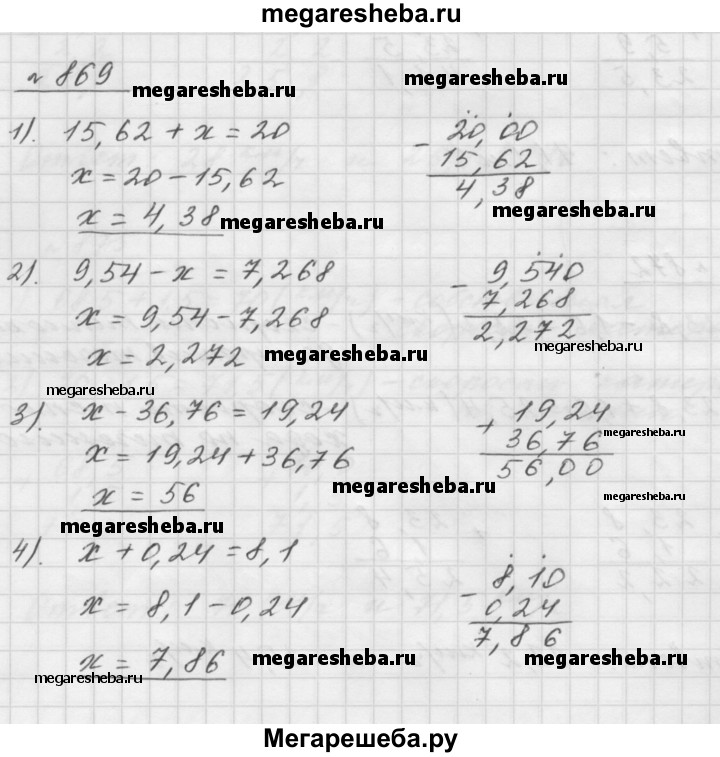 megaresheba.ru
№ 869
megaresheba.ru
megaresheba.ru
1). 15,62 + x = 20
x = 20 - 15,62
x = 4,38
megaresheba.ru
- 20,00
15,62
4,38
megaresheba.ru
2). 9,54 - x = 7,268
x = 9,54 - 7,268
x = 2,272
megaresheba.ru
- 9,540
7,268
2,272
megaresheba.ru
megaresheba.ru
3). x - 36,76 = 19,24
x = 19,24 + 36,76
x = 56
megaresheba.ru
+ 19,24
36,76
56,00
megaresheba.ru
megaresheba.ru
megaresheba.ru
4). x + 0,24 = 8,1
x = 8,1 - 0,24
x = 7,86
megaresheba.ru
megaresheba.ru
- 8,10
0,24
7,86
megaresheba.ru
Мегарешеба.ру